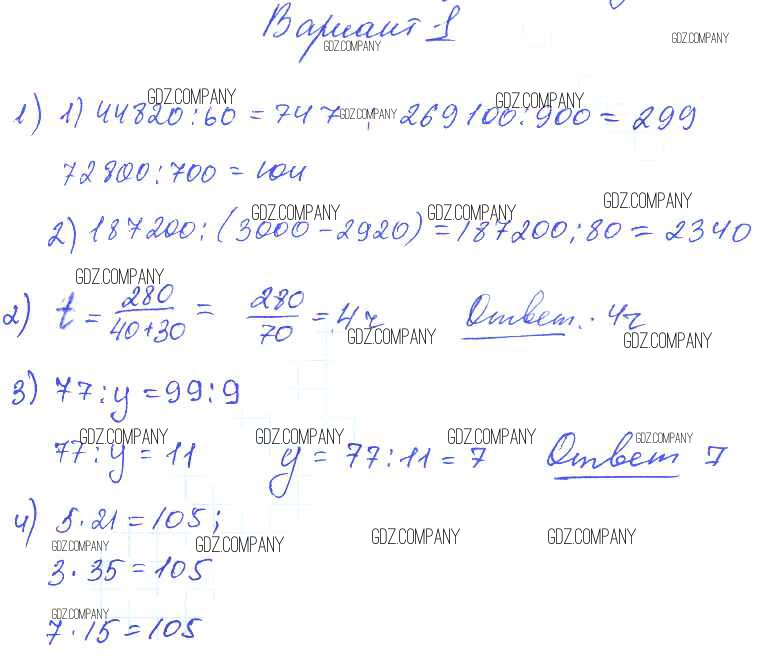 Вариант-1
GDZ.COMPANY GDZ.COMPANY
GDZ.COMPANY GDZ.COMPANY GDZ.COMPANY
1) 1) 44820:60 = 747, 269100:900 = 299
72800:700 = 104
GDZ.COMPANY GDZ.COMPANY GDZ.COMPANY
2) 187200:(3000-2920) = 187200:80 = 2340
GDZ.COMPANY
2) t = 280/(40+30) = 280/70 = 4ч Ответ: 4ч
GDZ.COMPANY GDZ.COMPANY
3) 77:y = 99:9
GDZ.COMPANY GDZ.COMPANY GDZ.COMPANY GDZ.COMPANY
77:y = 11 y = 77:11 = 7 Ответ 7
4) 5·21 = 105;
GDZ.COMPANY GDZ.COMPANY GDZ.COMPANY GDZ.COMPANY
3·35 = 105
GDZ.COMPANY
7·15 = 105